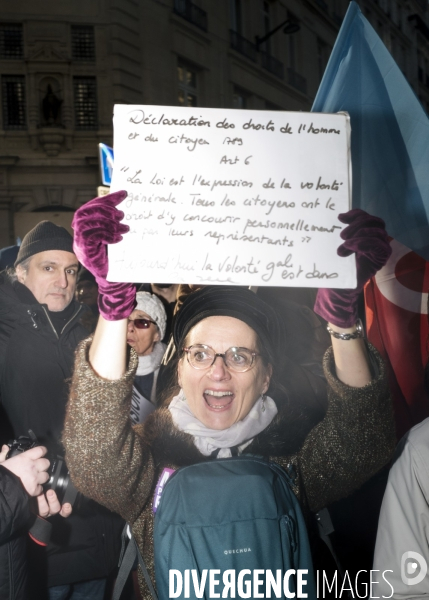 Déclaration des droits de l'homme
et du citoyen 1789
Art 6
"La loi est l'expression de la volonté
générale. Tous les citoyens ont le
droit d'y concourir personnellement
par leurs représentants"
la volonté gale est dans
QUECHUA
DIVERGENCE IMAGES